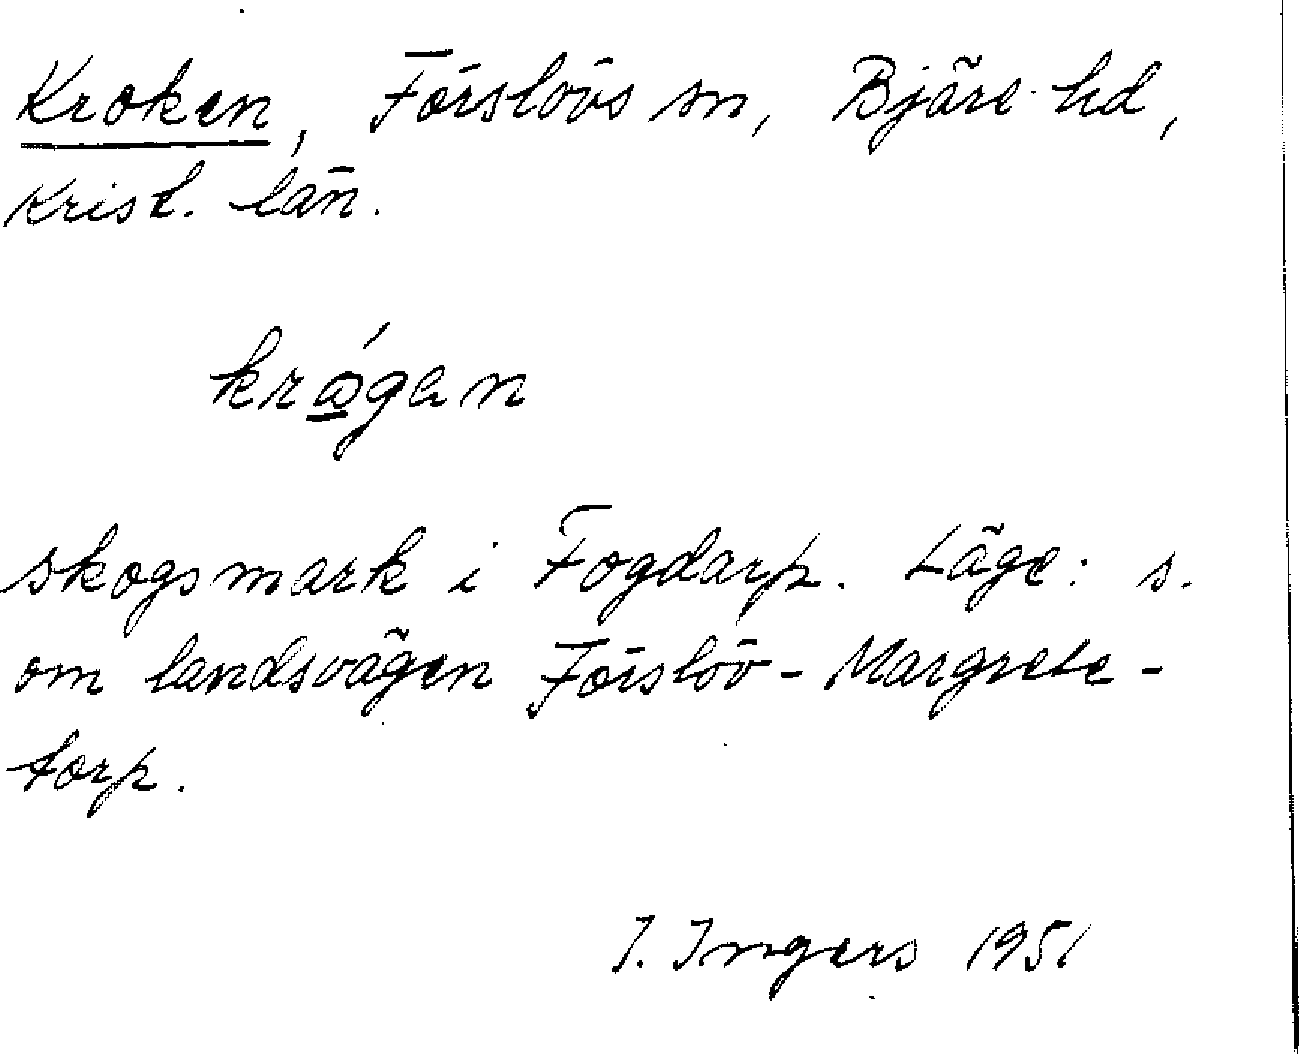 Kroken, Förslövs sn, Bjäre hd,
Krist. län.
krǻgan
skogsmark i Fogdarp. Läge: s.
om landsvägen Förslöv - Margrete-
torp.
I. Ingers 1951